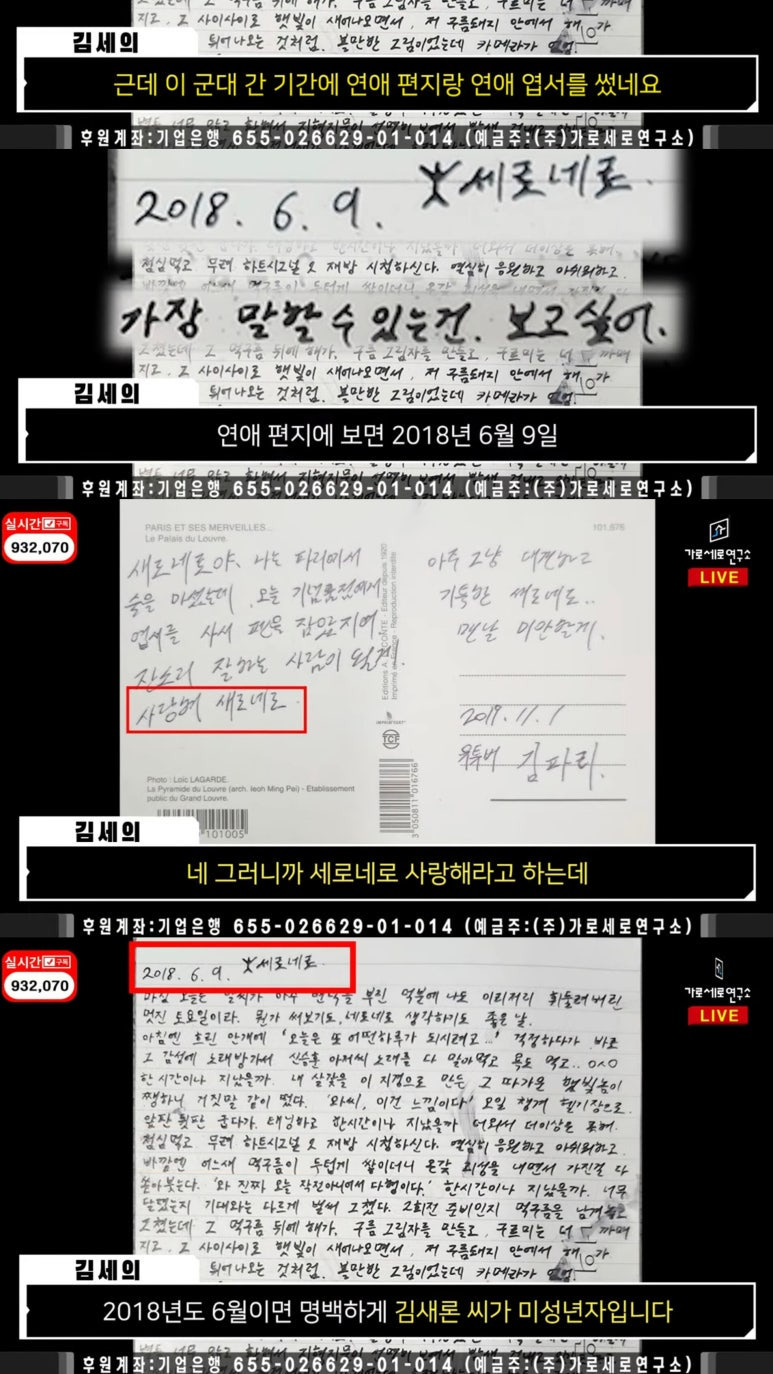 김세의
근데 이 군대 간 기간에 연애 편지랑 연애 엽서를 썼네요
후원계좌:기업은행 655-026629-01-014 (예금주:(주)가로세로연구소)
2018. 6. 9. 세로네로.
점심먹고 무려 하트시그널 2 재방 시청하신다. 열심히 응원하고 아쉬워하고.
가장 말할 수 있는건. 보고싶어.
지고, 그 사이사이로 햇빛이 새어나오면서, 저 구름돼지 안에서 해 가
튀어나오는 것처럼. 볼만한 그림이었는데 카메라가
김세의
연애 편지에 보면 2018년 6월 9일
후원계좌:기업은행 655-026629-01-014 (예금주:(주)가로세로연구소)
실시간 구독
932,070
가로세로연구소
LIVE
PARIS ET SES MERVEILLES...
Le Palais du Louvre.
101.676
새로네로야. 나는 파리에서
술을 마셨는데. 오늘 기념품점에서
엽서를 사서 펜을 잡았지여.
잔소리 잘하는 사람이 될게.
사랑해 새로네로.
아주 그냥 대견하고
기특한 새로네로..
맨날 미안할게.
2019. 11. 1
유튜버 김파리.
Photo : Loïc LAGARDE.
La Pyramide du Louvre (arch. Ieoh Ming Pei) - Etablissement
public du Grand Louvre.
101005
3 050811 016766
김세의
네 그러니까 세로네로 사랑해라고 하는데
후원계좌:기업은행 655-026629-01-014 (예금주:(주)가로세로연구소)
실시간 구독
932,070
가로세로연구소
LIVE
2018. 6. 9. 세로네로.
오늘은 날씨가 아주 변덕을 부린 덕분에 나도 이리저리 휘둘려버린
멋진 토요일이라. 뭔가 써보기도, 네로네로 생각하기도 좋은 날.
아침엔 흐린 안개에 '오늘은 또 어떤하루가 되시려고...' 걱정하다가 바로
그 감성에 노래방가서 신승훈 아저씨 노래를 다 말아먹고 욕도 먹고..
한시간이나 지났을까. 내 살갗을 이 지경으로 만든 그 따가운 햇빛놈이
쨍하니 거짓말 같이 떴다. '와씨, 이건 느낌이다' 오일 챙겨 헬기장으로.
앞판 뒷판 굽다가. 태닝하고 한시간이나 지났을까 더워서 더이상은 못해.
점심먹고 무려 하트시그널 2 재방 시청하신다. 열심히 응원하고 아쉬워하고.
바깥엔 어느새 먹구름이 두텁게 쌓이더니 온갖 회색을 내면서 가진걸 다
쏟아붓는다. '와 진짜 오늘 작전아니어서 다행이다.' 한시간이나 지났을까. 너무
달랬는지 기대와는 다르게 벌써 그쳤다. 2회전 준비인지 먹구름을 남겨
그쳤는데 그 먹구름 뒤에 해가. 구름 그림자를 만들고, 구르미는 더 까매
지고, 그 사이사이로 햇빛이 새어나오면서, 저 구름돼지 안에서 해 가
튀어나오는 것처럼. 볼만한 그림이었는데 카메라가
김세의
2018년도 6월이면 명백하게 김새론 씨가 미성년자입니다
후원계좌:기업은행 655-026629-01-014 (예금주:(주)가로세로연구소)